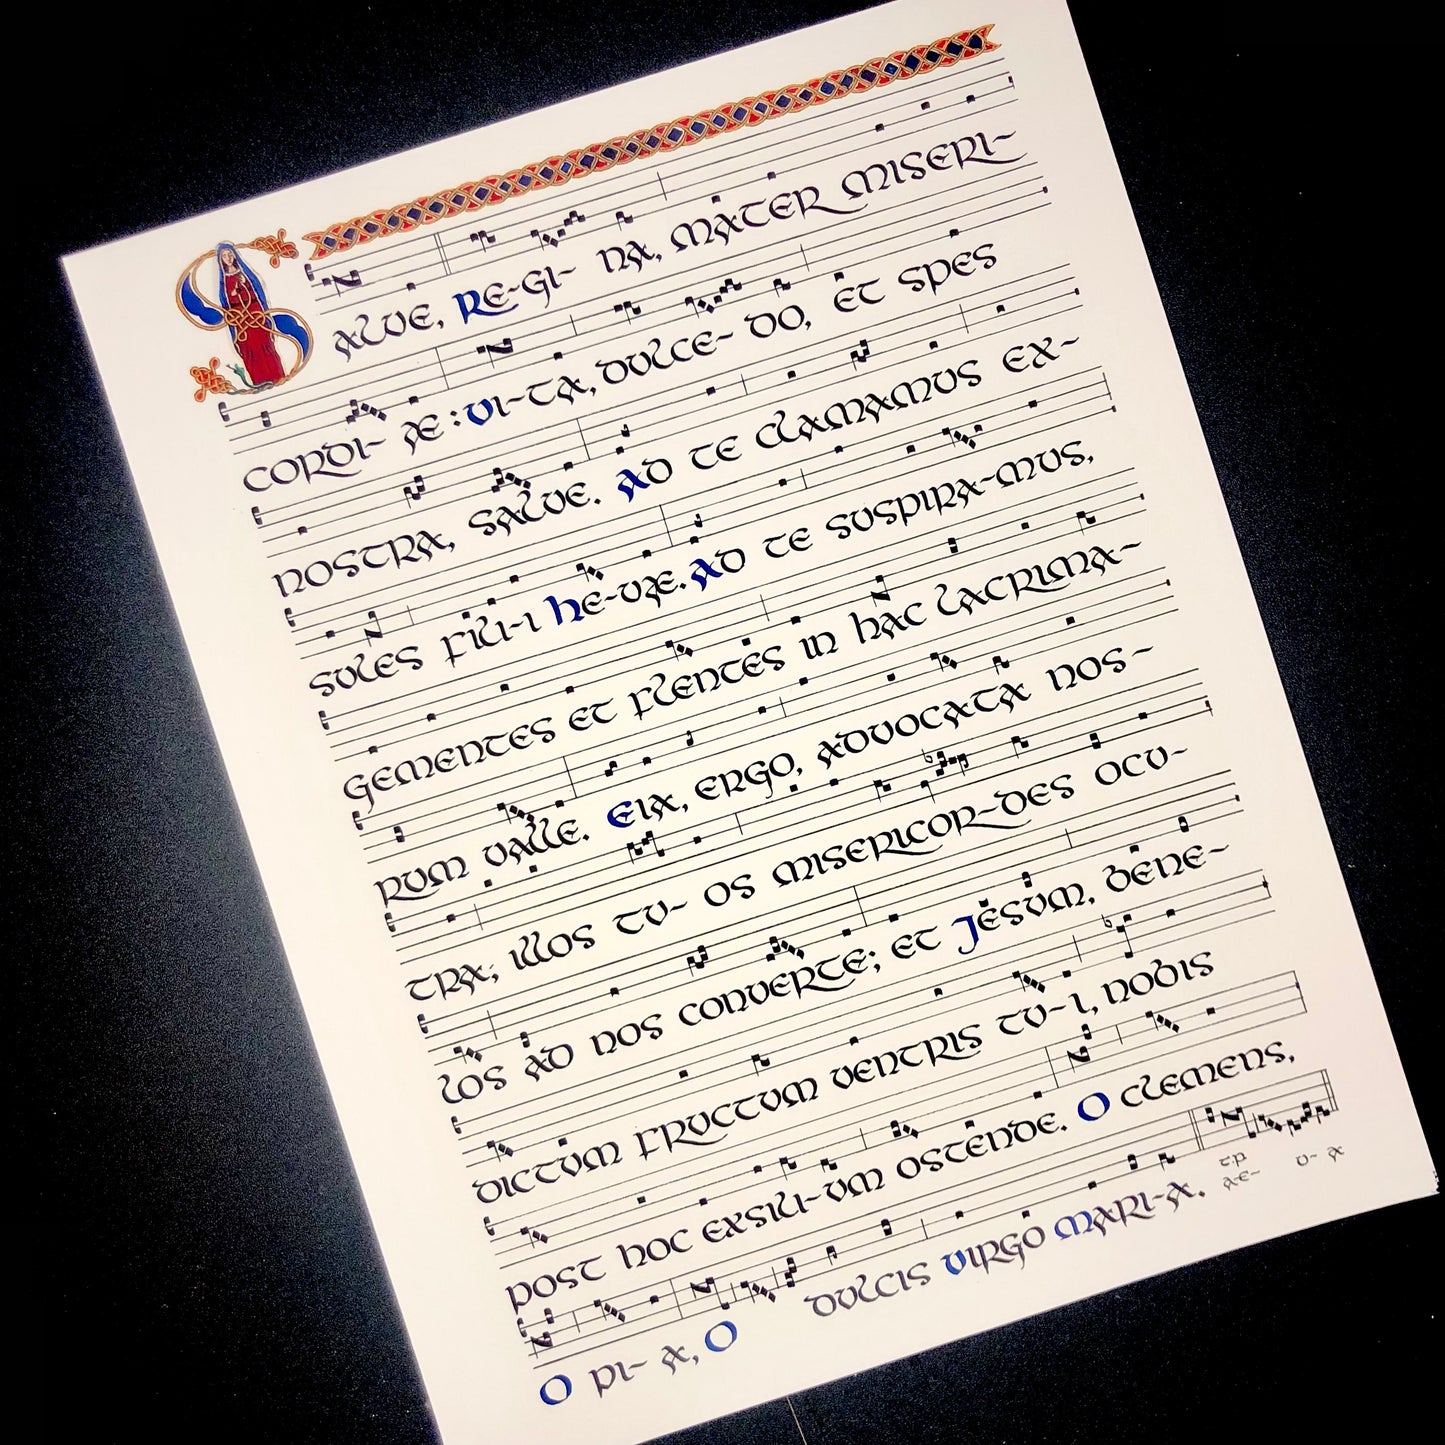 SALVE, RE-GI- NA, MATER MISERI-
CORDI- Æ: VI-TA, DULCE- DO, ET SPES
NOSTRA, SALVE. AD TE CLAMAMUS EX-
SULES FILI-I HE-VÆ. AD TE SUSPIRA-MUS,
GEMENTES ET FLENTES IN HAC LACRIMA-
RUM VALLE. EIA, ERGO, ADVOCATA NOS-
TRA; ILLOS TU- OS MISERICOR-DES OCU-
LOS AD NOS CONVERTE; ET JESUM, BENE-
DICTUM FRUCTUM VENTRIS TU-I, NOBIS
POST HOC EXSILI-UM OSTENDE. O CLEMENS,
O PI- A, O DULCIS VIRGO MARI-A. T.P. AE- U- A